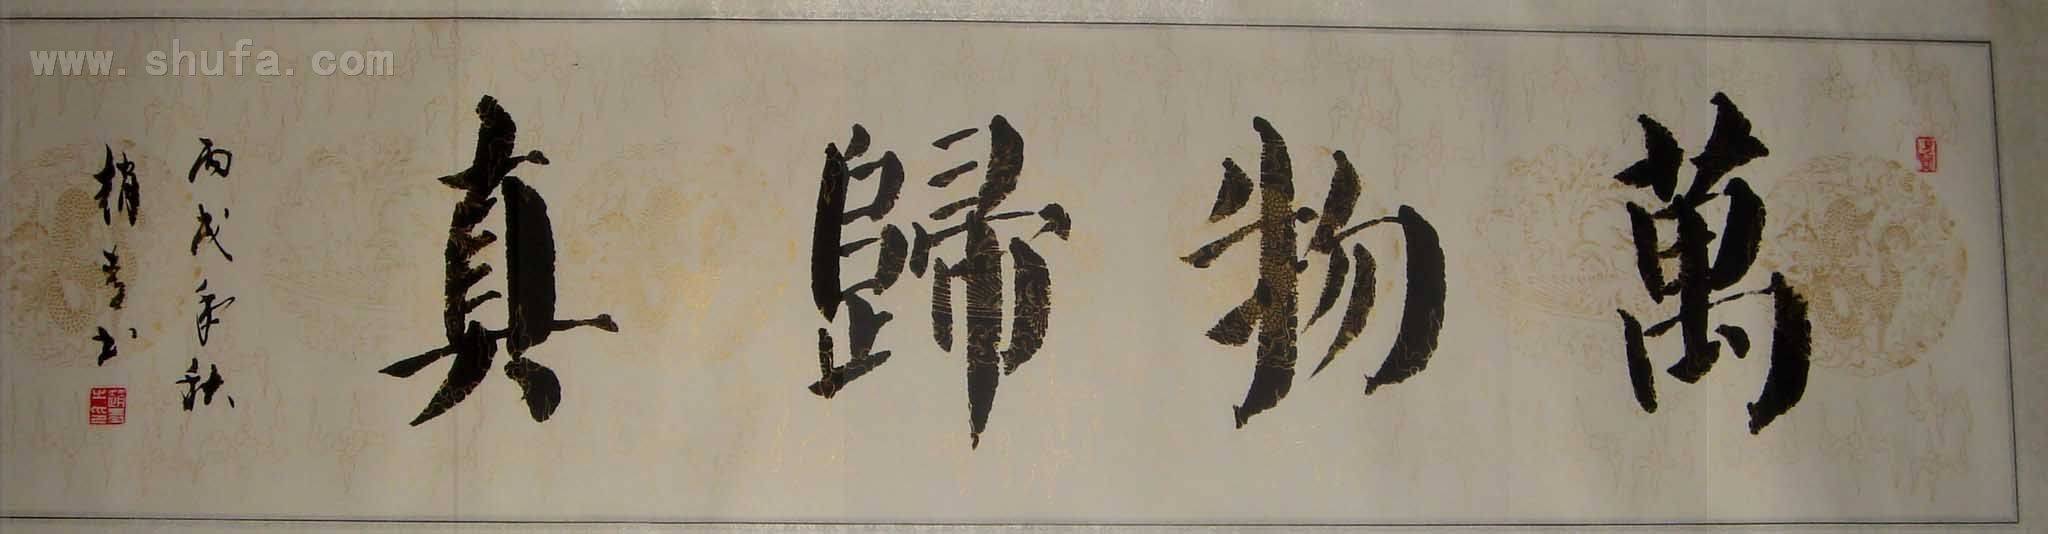 萬物歸真
丙戌年秋
書
www.shufa.com